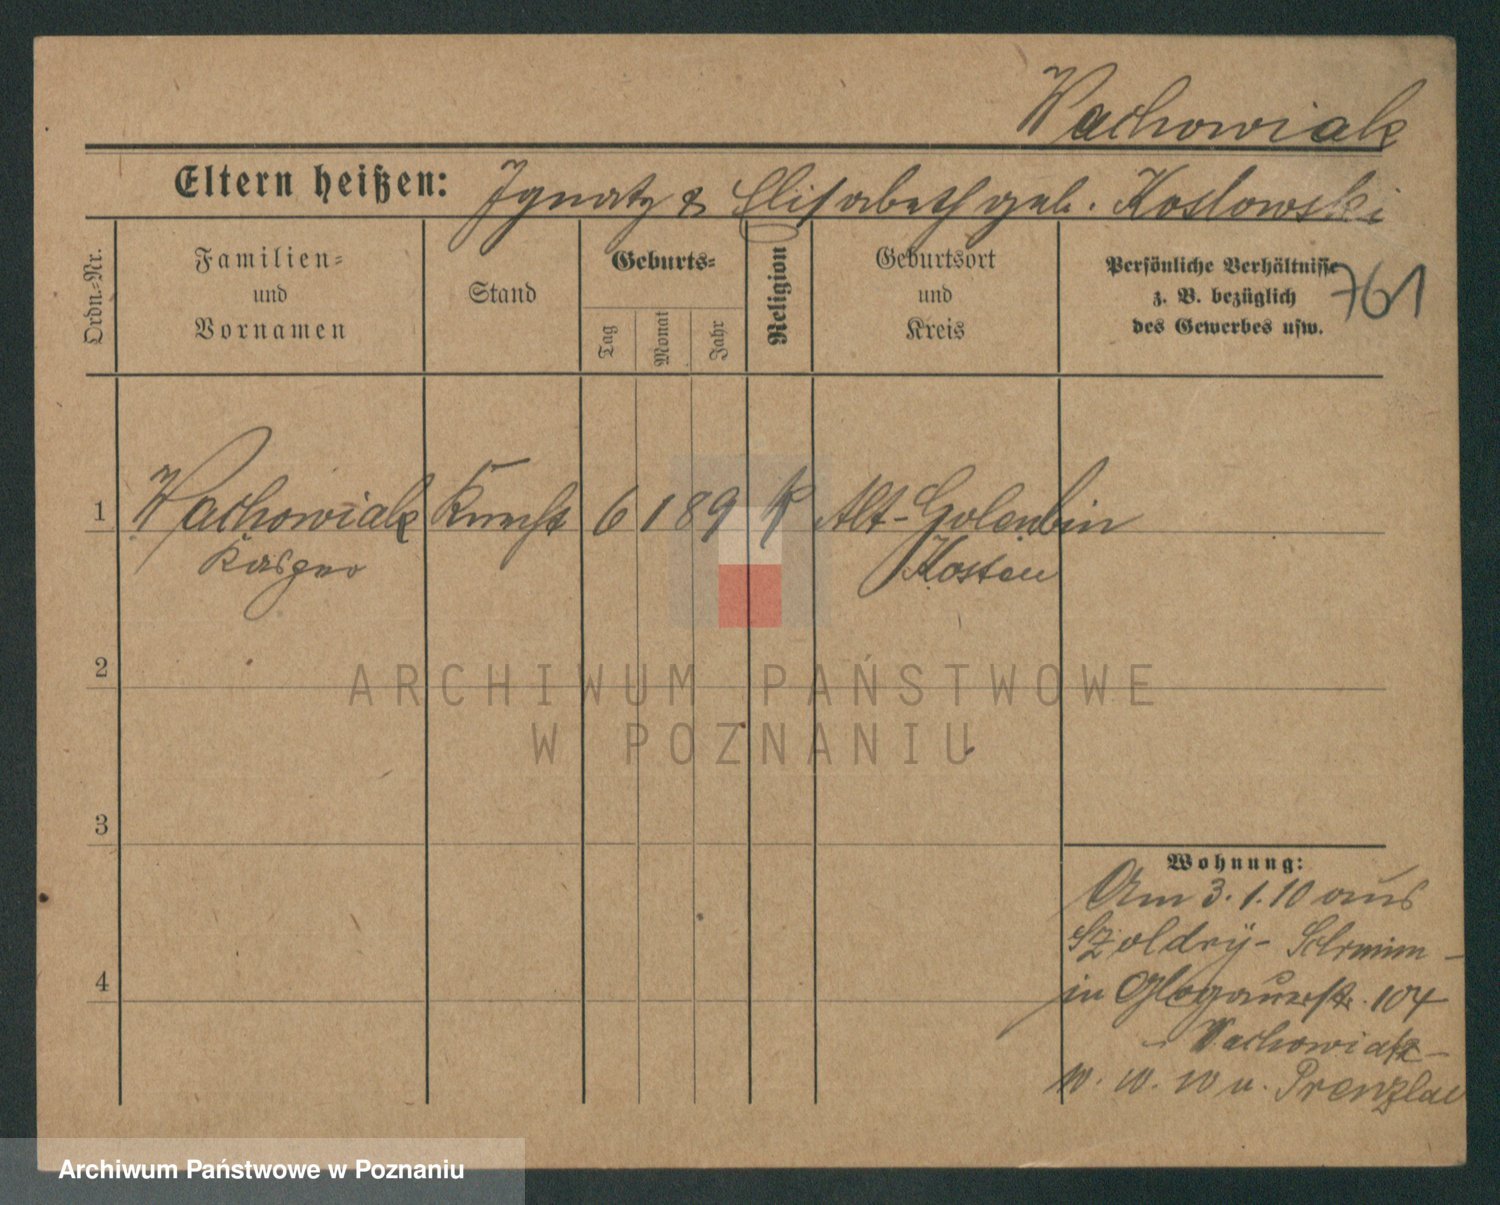 Wachowiak
Eltern heißen: Ignatz & Elisabeth geb. Koslowski
Ordn.-Nr.
Familien-
und
Vornamen
Stand
Geburts-
Tag
Monat
Jahr
Religion
Geburtsort
und
Kreis
Persönliche Verhältnisse
z. B. bezüglich
des Gewerbes usw.
761
1 Wachowiak Knecht 6 1 89 K Alt-Golembin
Kasper Kosten
2
ARCHIWUM PAŃSTWOWE
W POZNANIU
3
Wohnung:
Am 3.1.10 aus
Szoldry- Schrimm -
4
in Glogauerstr. 104
- Wachowiak -
Prenzlau
Archiwum Państwowe w Poznaniu